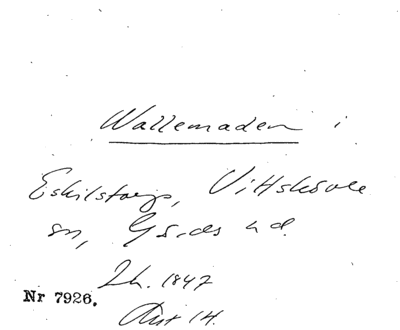 Wallemaden i
Eskilstorp, Vittskövle
sn, Gärds hd.
Lh. 1847
Nr 7926.
Akt 14.